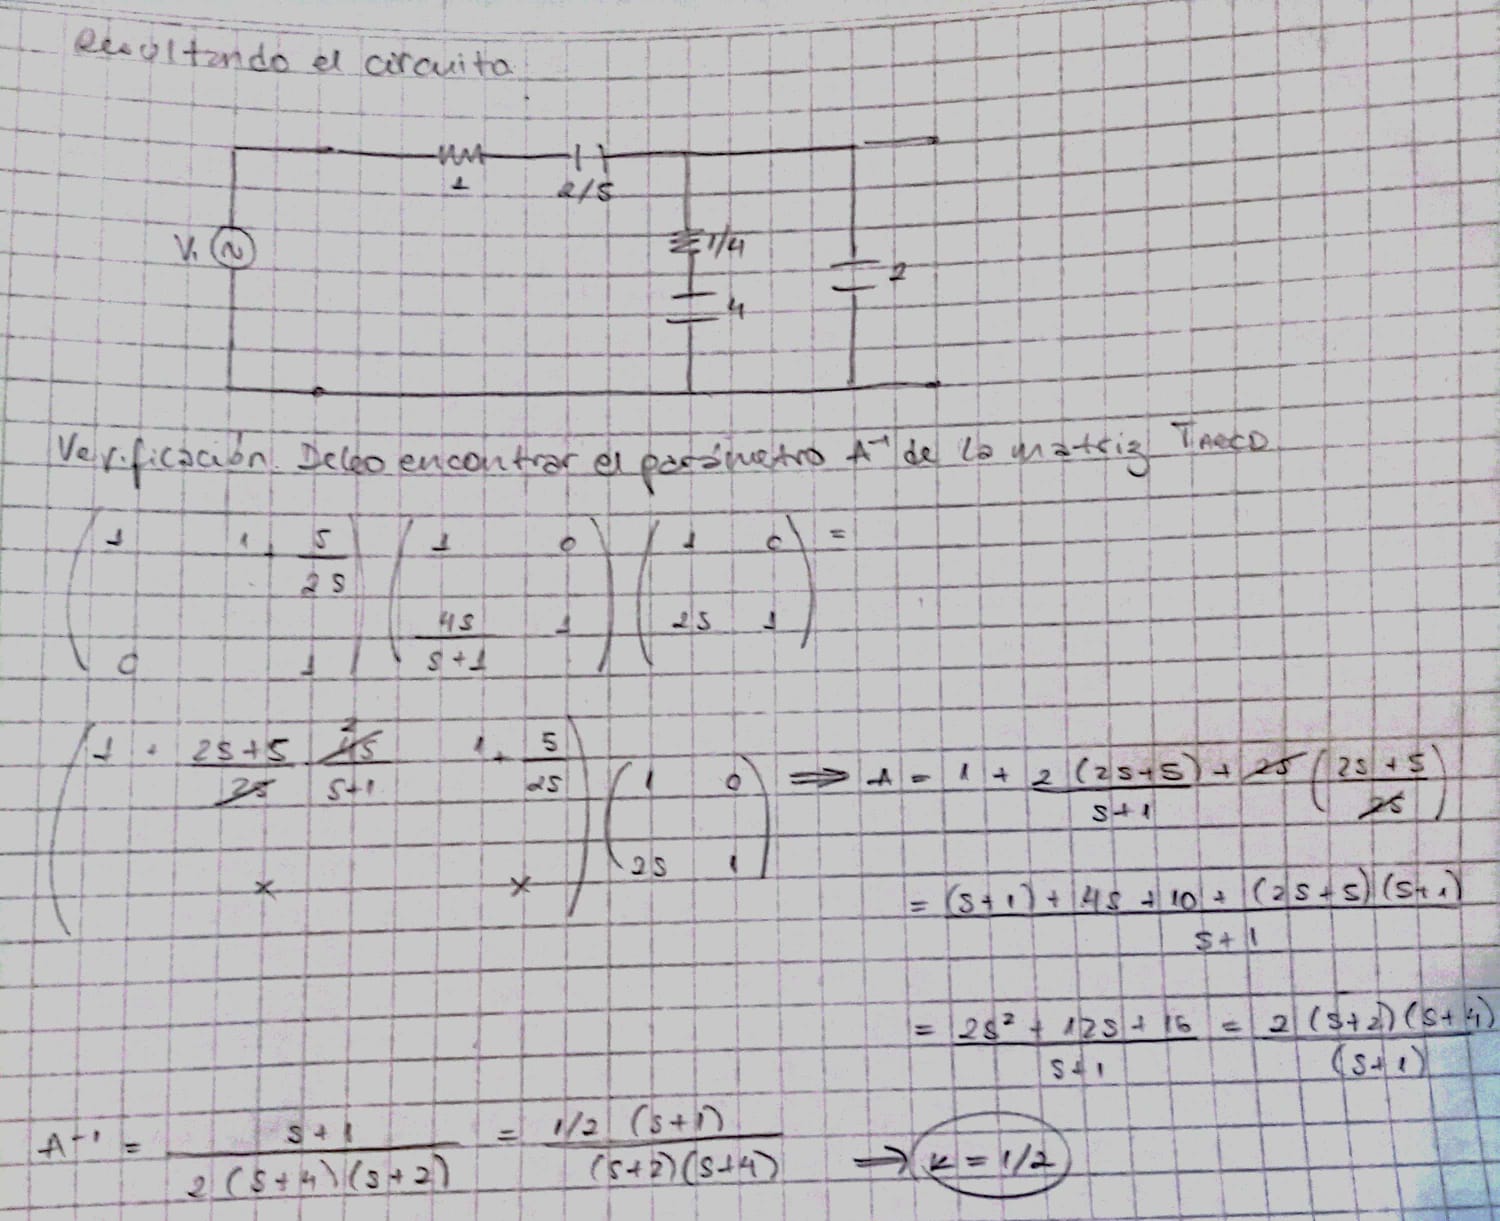 Resultando el circuito
1
2/5
V₁
1/4
4
2
Verificación. Debo encontrar el parámetro A⁻¹ de la matriz TABCD
( 1 1 + 5/2s ; 0 1 ) ( 1 0 ; 4s/(s+1) 1 ) ( 1 0 ; 2s 1 ) =
( 1 + (2s+5)/2s 4s/(s+1) 1 + 5/2s ; × × ) ( 1 0 ; 2s 1 ) ⇒ A = 1 + 2(2s+5)/(s+1) + 2s ( (2s+5)/2s )
2
= ((s+1) + 4s + 10 + (2s+5)(s+1))/(s+1)
= (2s² + 12s + 16)/(s+1) = 2(s+2)(s+4)/(s+1)
A⁻¹ = (s+1)/(2(s+4)(s+2)) = 1/2 (s+1)/((s+2)(s+4)) ⇒ k = 1/2